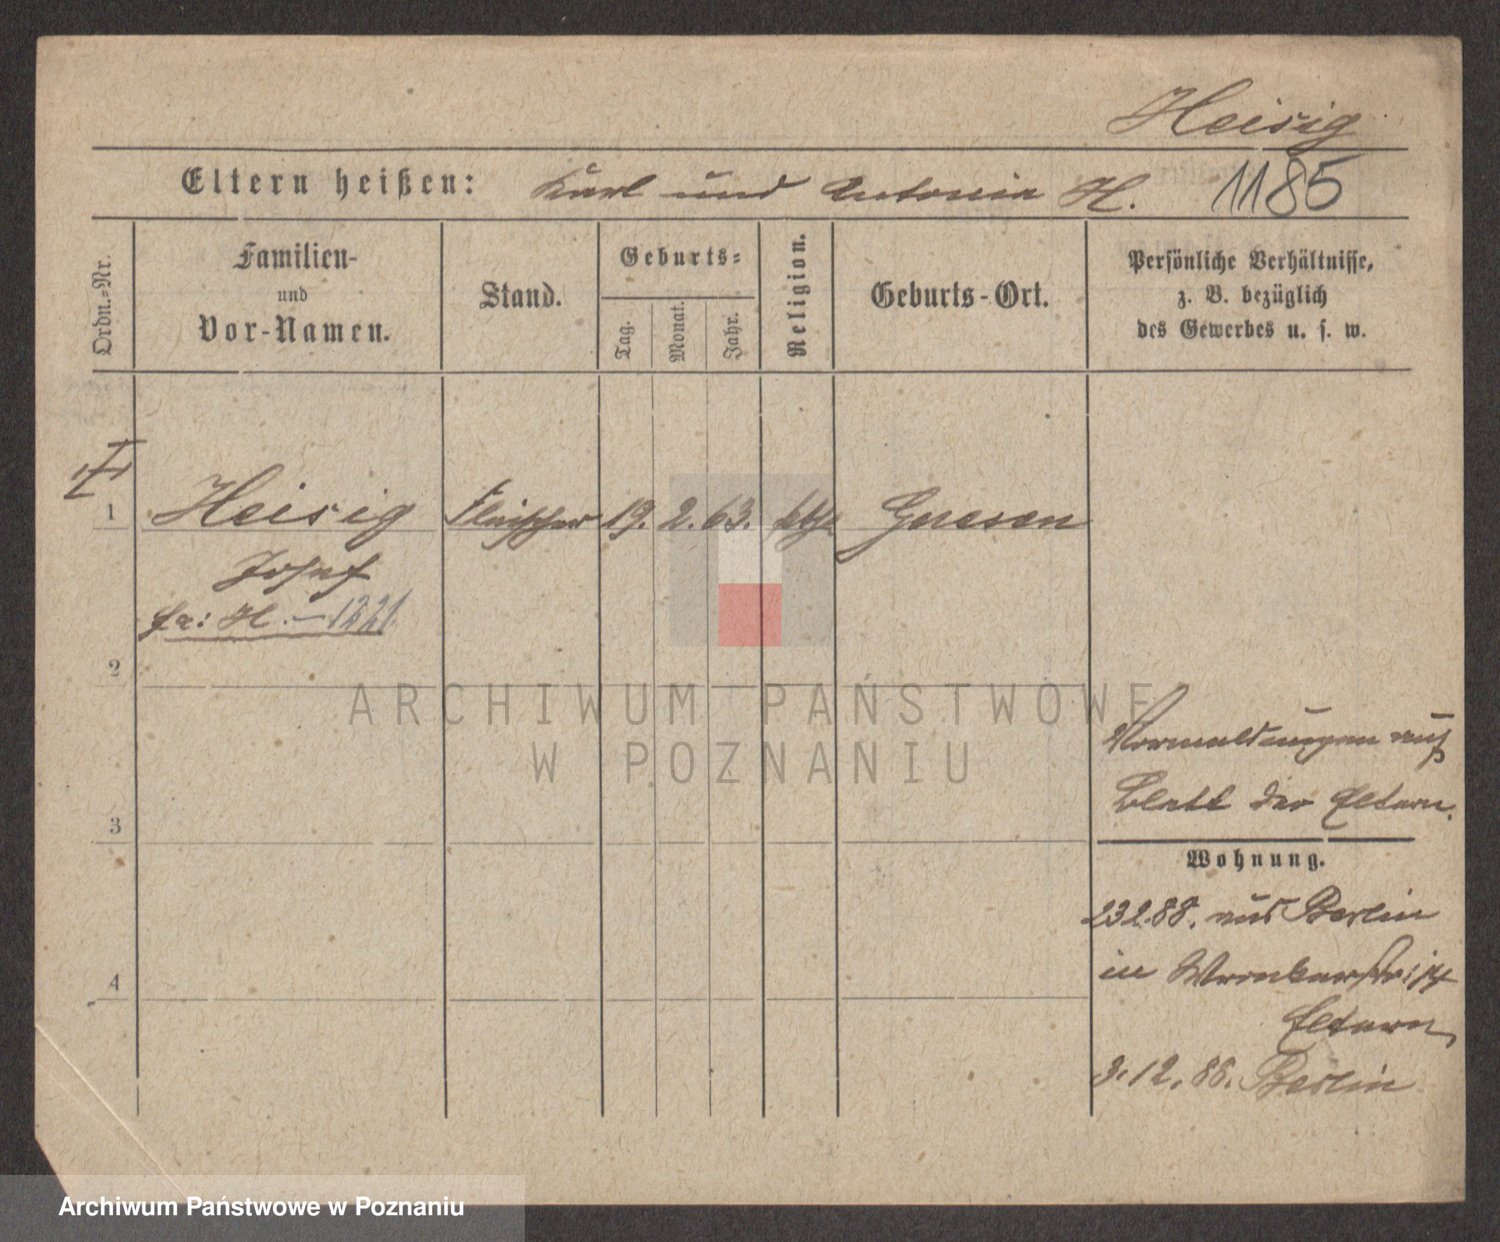 Heisig
Eltern heißen: Karl und Antonia H. 1185
Ordn.-Nr.
Familien-
und
Vor-Namen.
Stand.
Geburts-
Tag.
Monat.
Jahr.
Religion.
Geburts-Ort.
Persönliche Verhältnisse,
z. B. bezüglich
des Gewerbes u. s. w.
1 Heisig Fleischer 19. 2. 63. kath Gnesen
Josef
fr: H. – 1221.
2
ARCHIWUM PAŃSTWOWE
W POZNANIU
Vormeldungen auf
Blatt der Eltern.
3
Wohnung.
23.2.88. aus Berlin
in Wronkerstr: 14
Eltern
4
9.12.88. Berlin
Archiwum Państwowe w Poznaniu